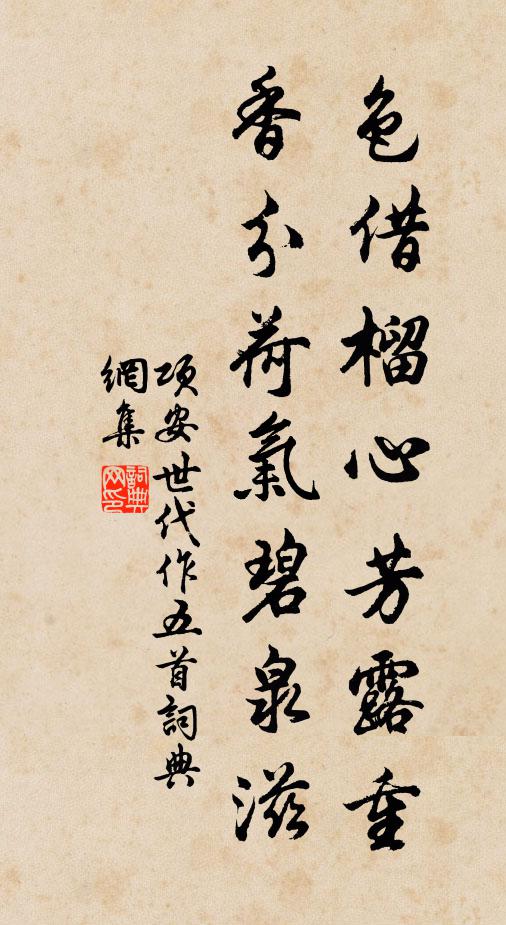 色借榴心芳露重
香分荷氣碧泉滋
項安世代作五首詞典
網集
詞典
网印